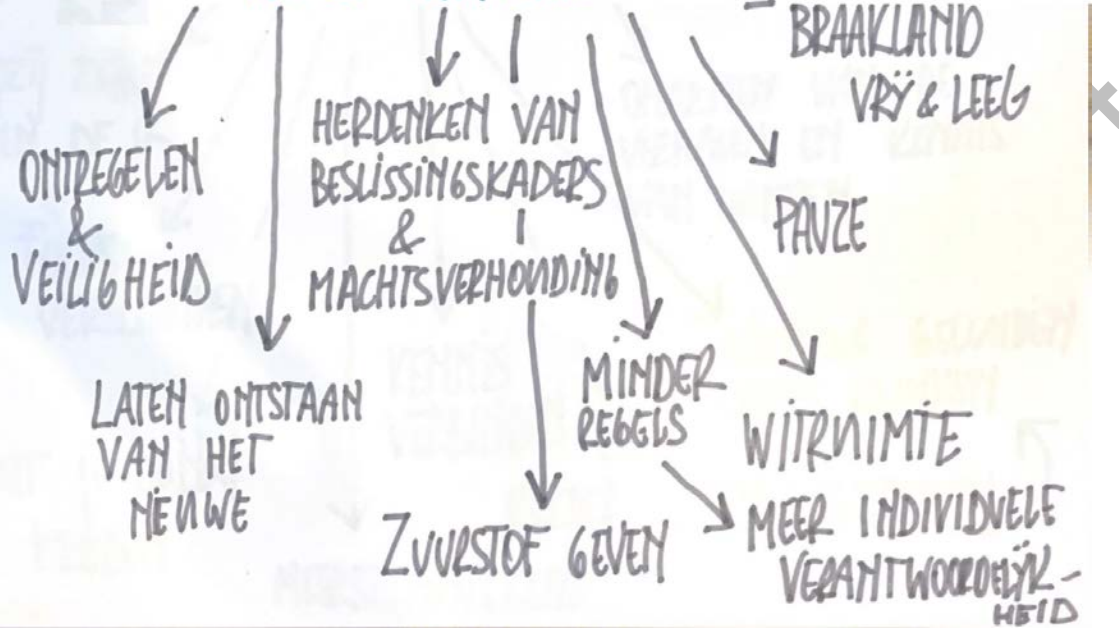 BRAAKLAND
VRIJ & LEEG
ONTREGELEN
&
VEILIGHEID
HERDENKEN VAN
BESLISSINGSKADERS
&
MACHTSVERHOUDING
PAUZE
LATEN ONTSTAAN
VAN HET
NIEUWE
MINDER
REGELS
WITRUIMTE
ZUURSTOF GEVEN
MEER INDIVIDUELE
VERANTWOORDELIJK-
HEID